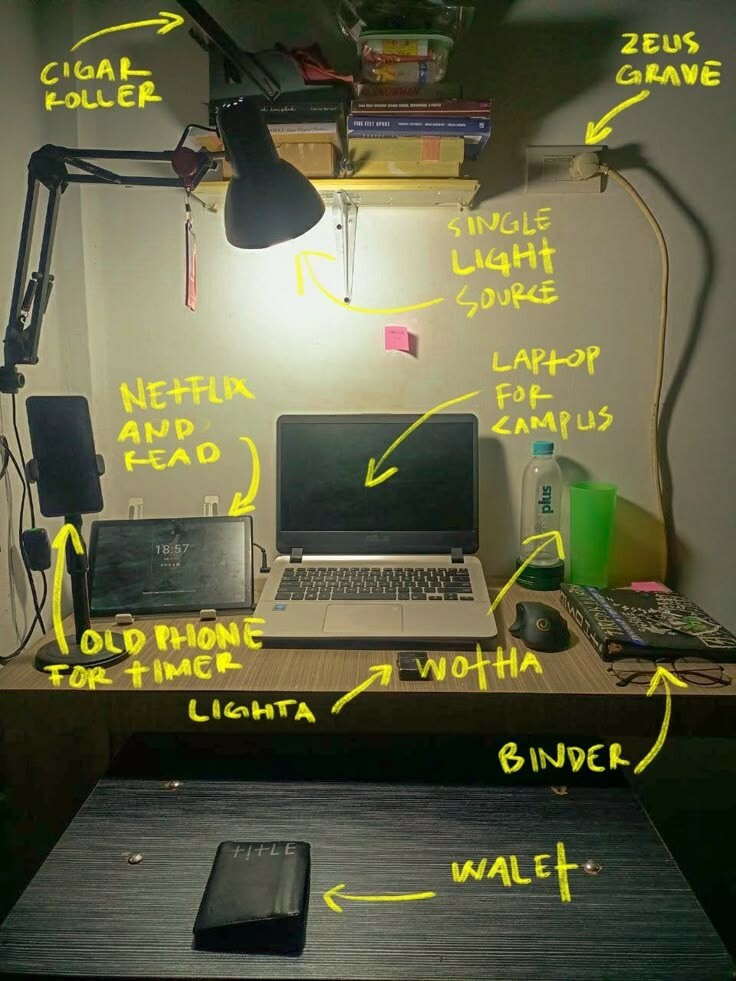 CIGAR
ROLLER
ZEUS
GRAVE
SNOWMAN
FIVE FEET APART
SINGLE
LIGHT
SOURCE
LAPTOP
FOR
CAMPUS
NETFLIX
AND
READ
plus
18:57
ASUS
OLD PHONE
FOR TIMER
WOTHA
LIGHTA
BINDER
TITLE
WALET